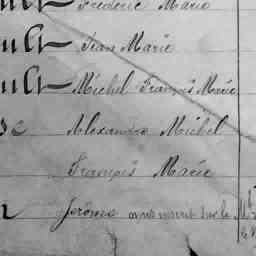 ult Frédéric Marie
ult Jean Marie
ult Michel François Marie
se Alexandre Michel
François Marie
Jérôme sur le